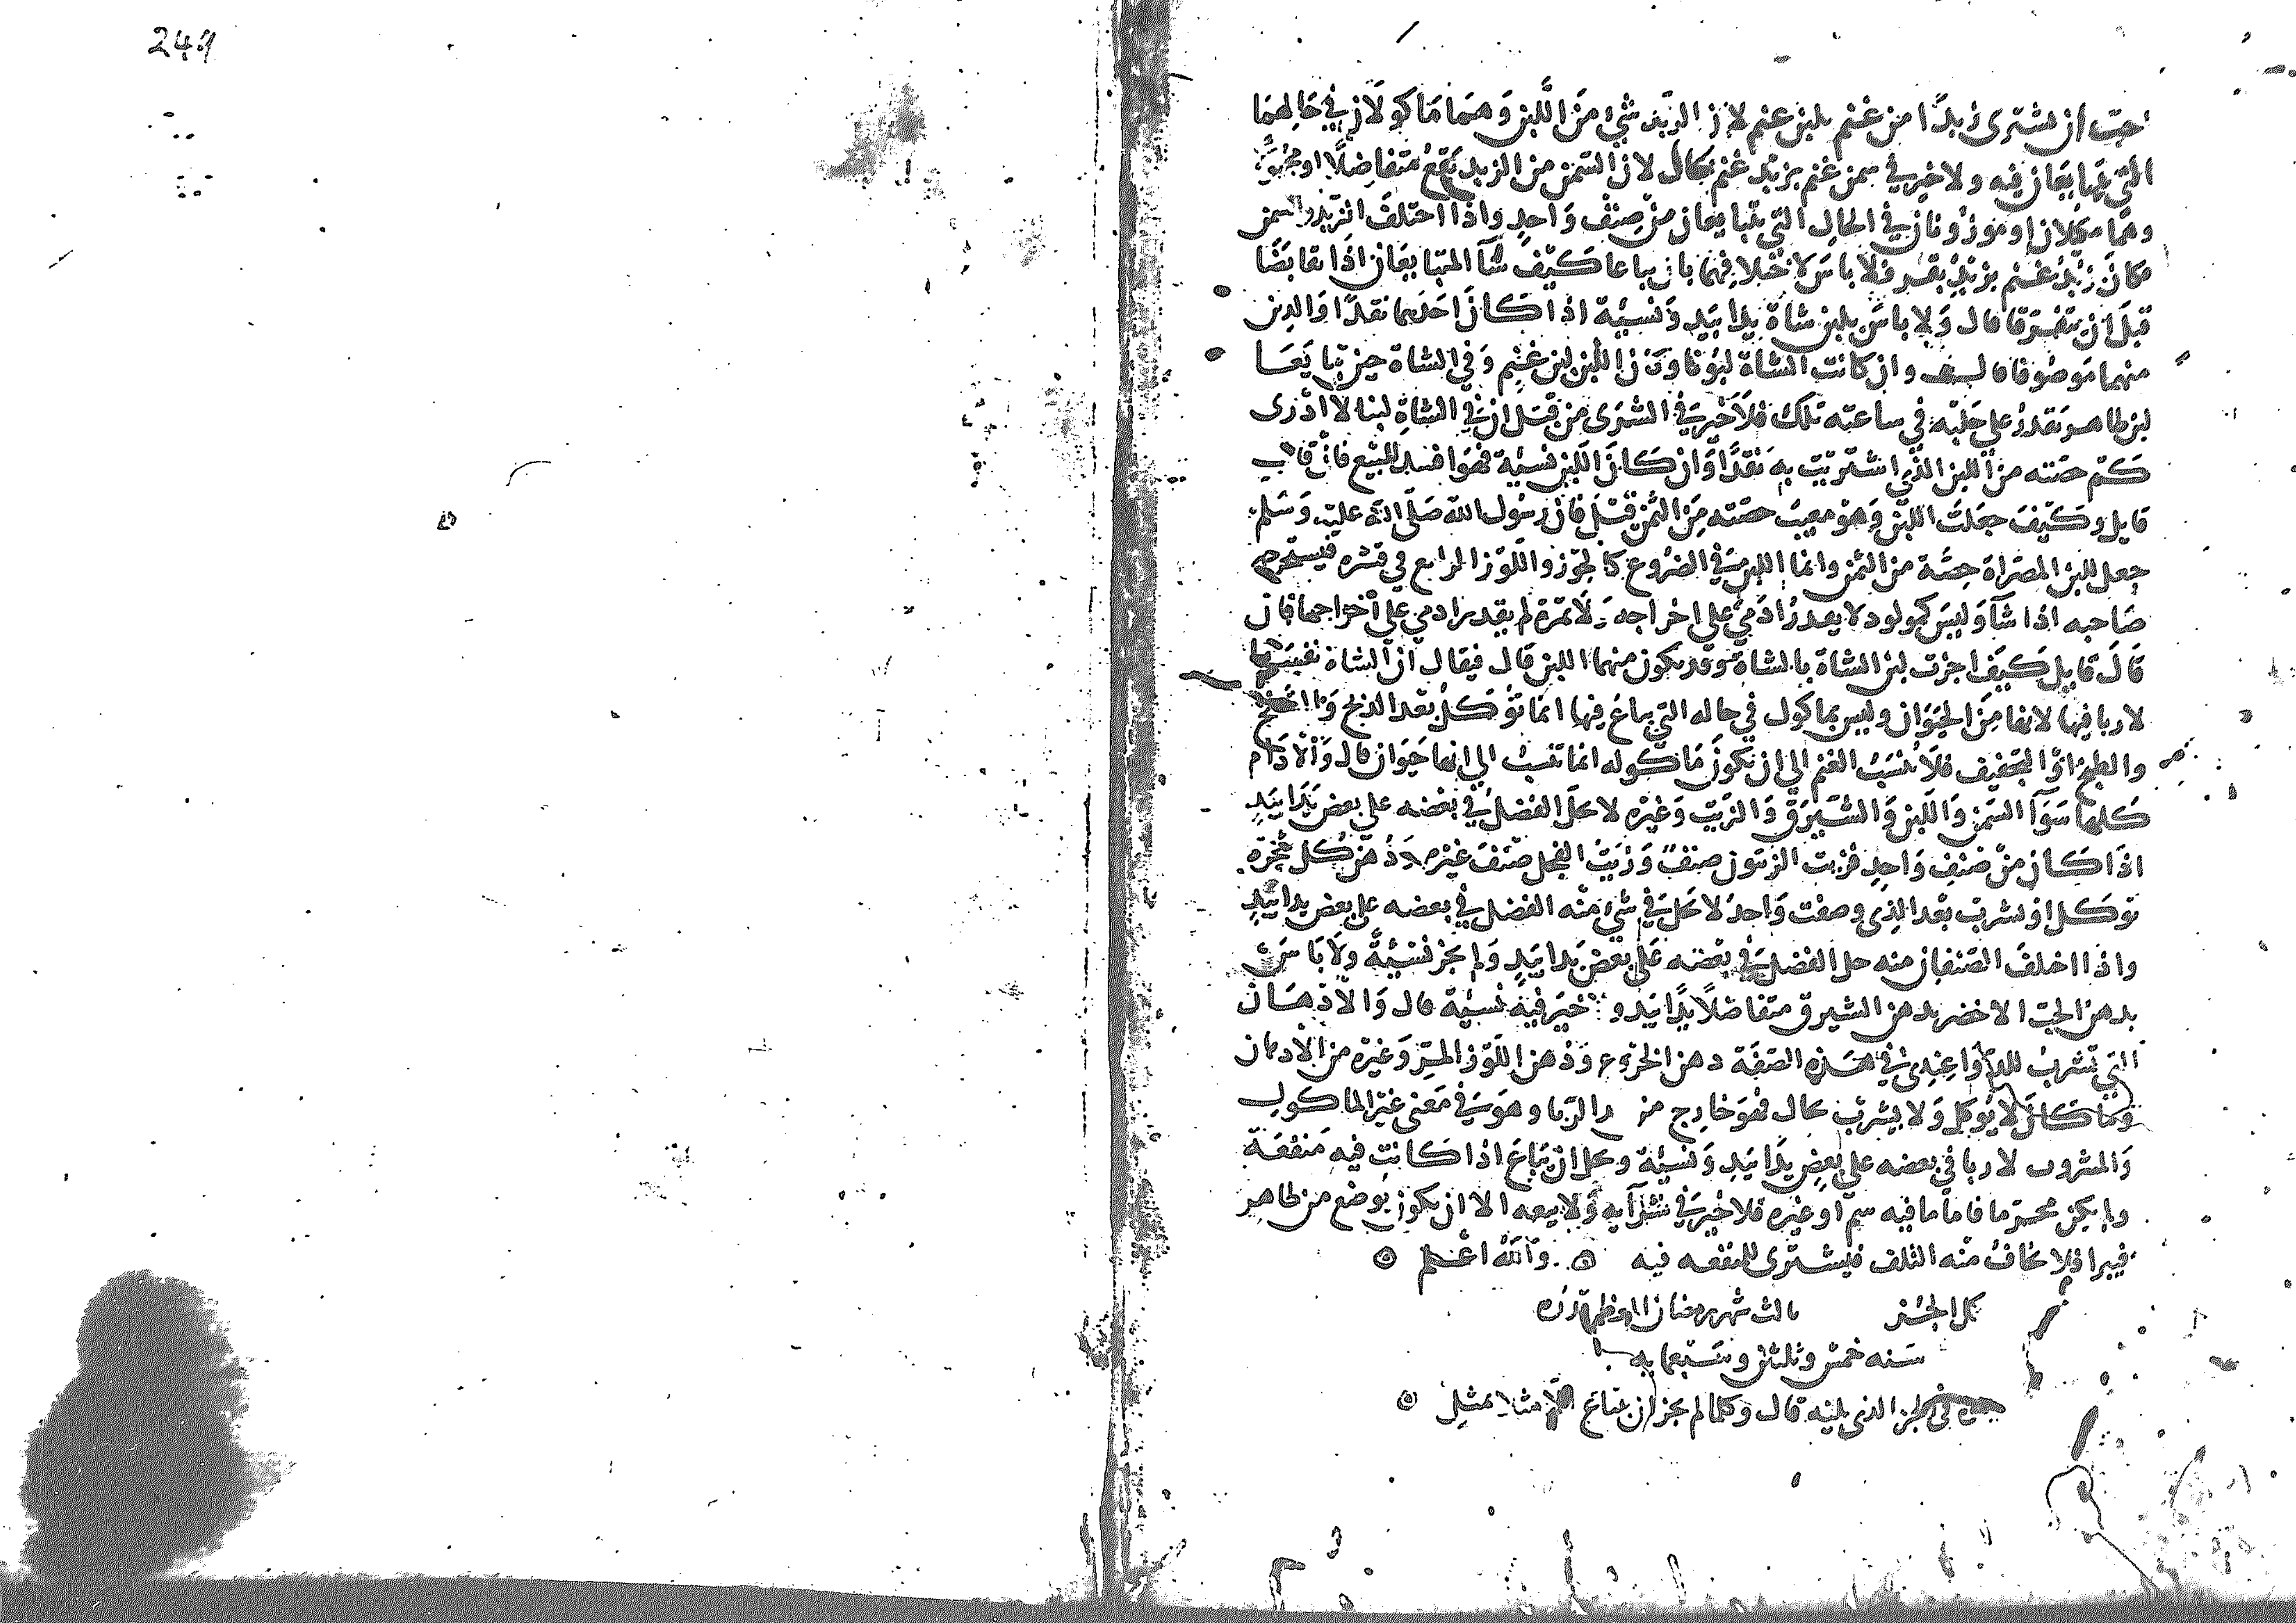 249
احب ان نشترى زبدا من غنم بلبن غنم لان الزبد شئ من اللبن وهما ماكولان في حالهما
التي تبايعان فيه ولا خير في سمن غنم بزبد غنم بحال لان السمن من الزبد يقع متفاضلا او مجهولا
وهما مكيلان او موزونان في الحال التي يتبايعان من صنف واحد واذا اختلف الزبد والسمن
فكان زبد غنم بزبد بقر فلا باس لاختلافهما بان يباعا كيف شآ المتبايعان اذا تقابضا
قبل ان يتفرقا قال ولا باس بلبن بشاة يدا بيد ونسيئة اذا كان احدهما نقدا والدين
منهما موصوفا قال وان كانت الشاة لبونا وكان اللبن لبن غنم وفي الشاة حين تبايعا
لبن ظاهر يقدر علي حلبه في ساعته تلك فلا خير في الشرى من قبل ان في الشاة لبنا لا ادرى
كم حصته من اللبن الذي اشتريت به نقدا وان كان اللبن نسيئة فهو افسد للبيع فان قال
قايل وكيف جعلت اللبن وهو مغيب حصته من الثمن قيل فان رسول الله صلى الله عليه وسلم
جعل للبن المصراة حصة من الثمن وانما اللبن في الضروع كالجوز واللوز الرايع في قشره فيستخرجه
صاحبه اذا شآ وليس كمولود لا يقدر ادمي علي اخراجه ولا ثمرة لم يقدر ادمي علي اخراجها فان
قال قايل كيف اجزت لبن الشاة بالشاة وقد يكون منهما اللبن قال فيقال ان الشاة نفسها
لا ربا فيها لانها من الحيوان وليس بماكول في حاله التي يباع فيها انما توكل بعد الذبح والسلخ
والطبخ او التجفيف فلا تنسب الغنم الي ان تكون ماكولة انما تنسب الي انها حيوان قال والادام
كلها سوآ السمن واللبن والشيرق والزيت وغيره لا يحل الفضل في بعضه علي بعض يدا بيد
اذا كان من صنف واحد فزيت الزيتون صنف وزيت الفجل صنف غيره ودهن كل شجرة
توكل او تشرب بعد الذي وصفت واحد لا يحل في شئ منه الفضل في بعضه علي بعض يدا بيد
واذا اختلف الصنفان منه حل الفضل في بعضه علي بعض يدا بيد ولم يجز نسيئة ولا باس
بدهن الحب الاخضر بدهن الشيرق متفاضلا يدا بيد ولا خير فيه نسيئة قال والادهان
التي تشرب للدوا عندى في هذه الصفة دهن الخروع ودهن اللوز المر وغيره من الادهان
وما كان لا يوكل ولا يشرب بحال فهو خارج من الربا وهو في معني غير الماكول
والمشروب لا ربا في بعضه علي بعض يدا بيد ونسيئة ويحل ان يباع اذا كانت فيه منفعة
ولم يكن محرما فاما ما فيه سم او غيره فلا خير في شرآيه ولا بيعه الا ان يكون يوضع من ظاهر
فيبرا فلا يخاف منه التلف فيشترى للمنفعه فيه والله اعلم
كمل الجز ثالث شهر رمضان المعظم قدره
سنه خمس وثلثين وسبعمايه
في الجز الذي يليه قال وكلما لم يجز ان يتباع الا مثلا بمثل